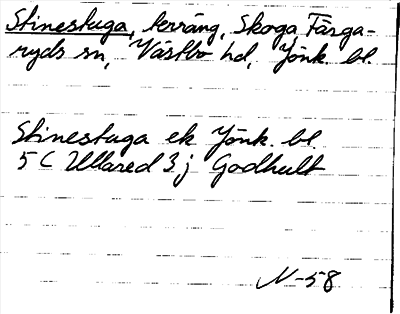 Stinestuga, terräng, Skoga Färga-
ryds sn, Västbo hd, Jönk. bl.
Stinestuga ek Jönk. bl.
5 C Ullared 3 j Godhult
N-58